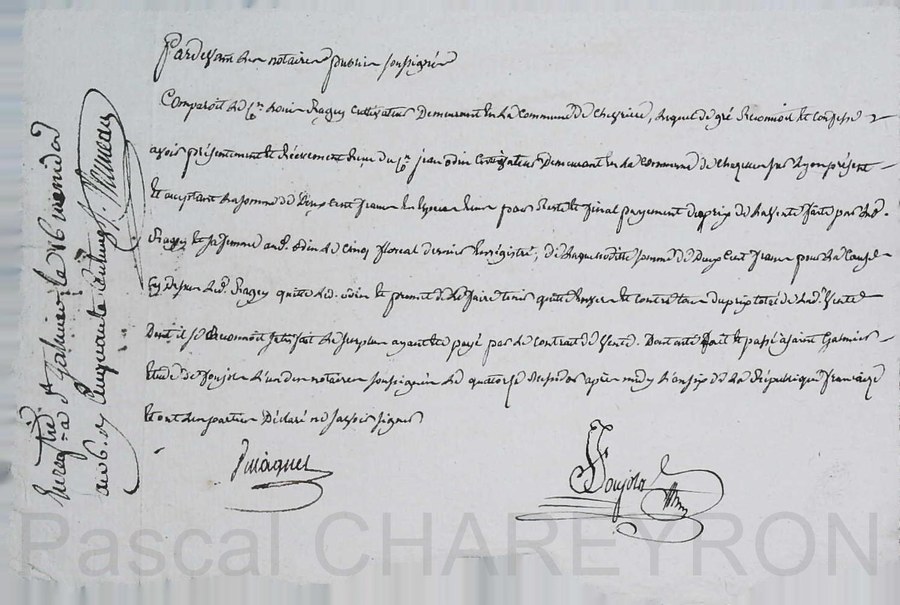 Pardevant les notaires publics soussignés
Comparoit le Cn Louis Ragey cultivateur demeurant en la commune de Chevrière, lequel de gré reconnoit et confesse
avoir présentement et réellement reçu du Cn jean odin cultivateur demeurant en la commune de présent
et acceptant la somme de deux cent francs en pour reste et final payement du prix de la vente faite par led.
Ragey et sa femme aud. odin le cinq floreal dernier enregistré, de laquelle ditte somme de deux cent francs
led. Ragey quitte led. odin et promet de le faire tenir quitte envers et contre tous du prix total de lad. vente
Dont il se reconnoit satisfait le surplus ayant été payé par le contrat de vente. Dont acte fait et passé a saint Galmier
étude de Soujola l'un des notaires soussignés le quatorze messidor après midy l'an six de la République française
et ont les parties déclaré ne savoir signer
Soujola
Enregistré a St Galmier le 16 messidor
an 6. Rx cinquante centimes
Pascal CHAREYRON